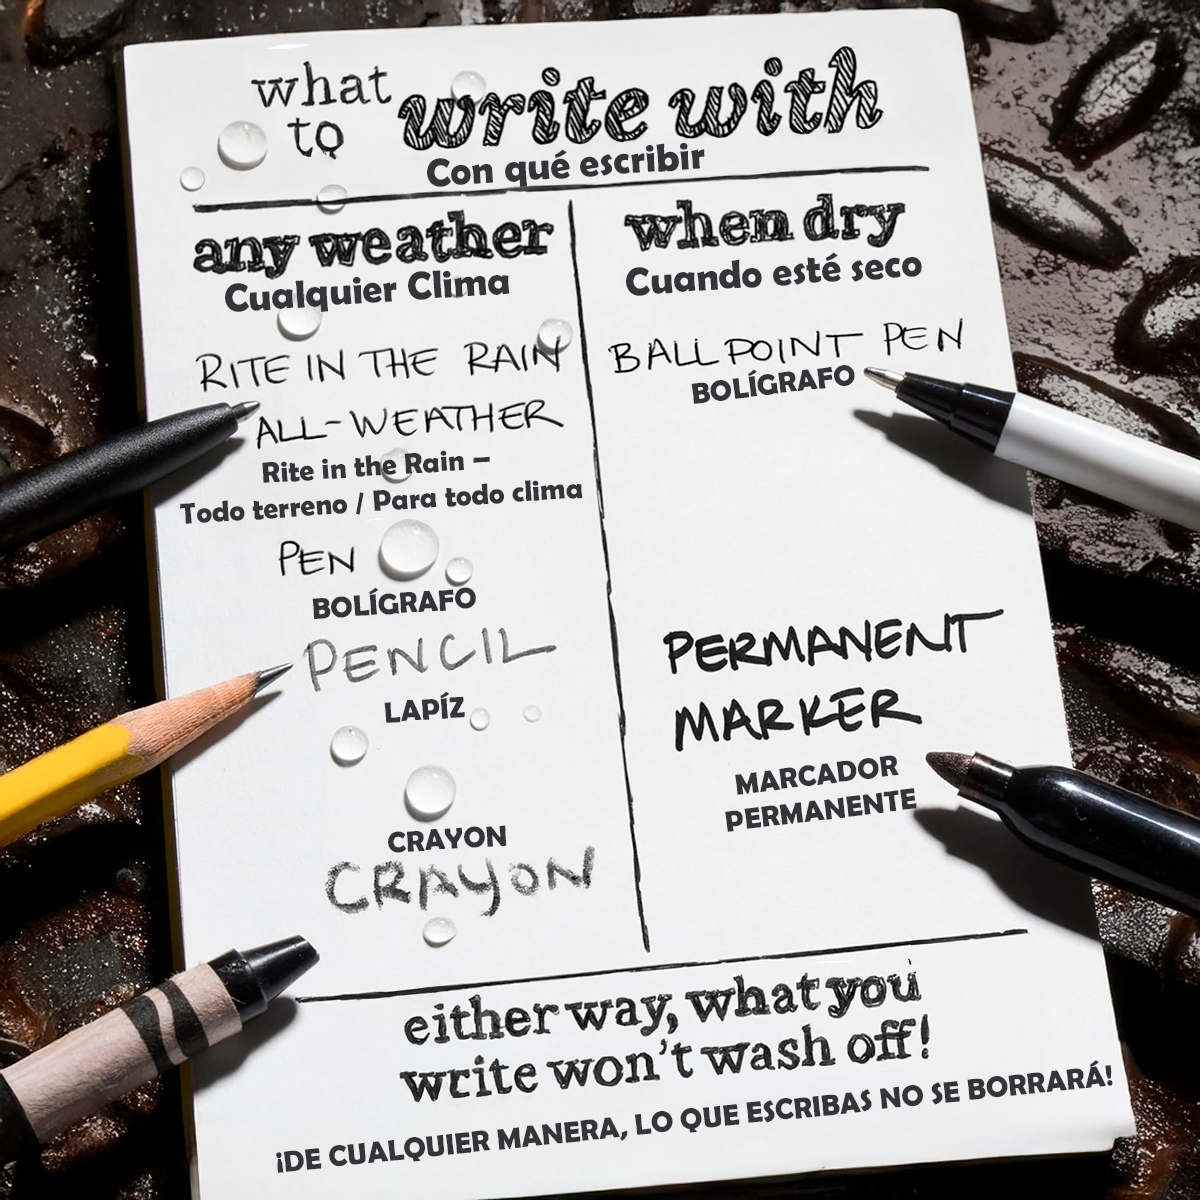 what
to write with
Con qué escribir
any weather
Cualquier Clima
RITE IN THE RAIN
ALL-WEATHER
Rite in the Rain –
Todo terreno / Para todo clima
PEN
BOLÍGRAFO
PENCIL
LAPÍZ
CRAYON
CRAYON
when dry
Cuando esté seco
BALLPOINT PEN
BOLÍGRAFO
PERMANENT
MARKER
MARCADOR
PERMANENTE
either way, what you
write won't wash off!
¡DE CUALQUIER MANERA, LO QUE ESCRIBAS NO SE BORRARÁ!